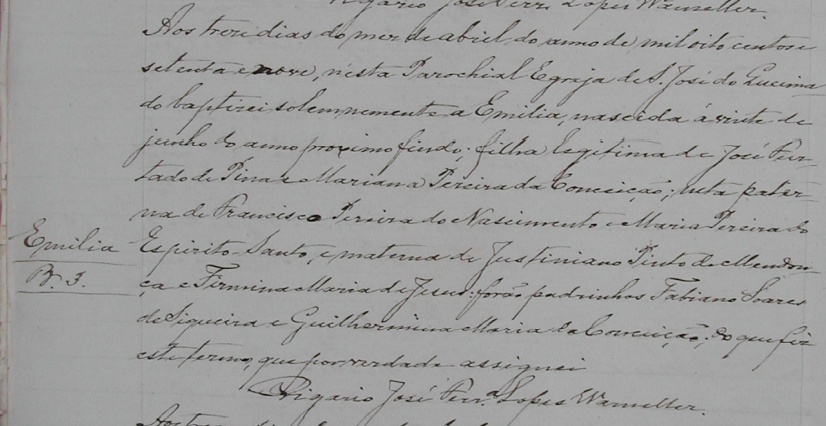 Vigario José Ferr.ª Lopes Wanseller.
Aos trese dias do mez de abril do anno de mil oito centos e
setenta e nove, nésta Parochial Egreja de S. José do Queima
do baptizei solemnemente a Emilia, nascida á vinte de
junho do anno proximo findo; filha legitima de José Fur-
tado de Pina e Marianna Pereira da Conceição; neta pater-
na de Francisco Pereira do Nascimento e Maria Pereira do
Espirito-Santo, e materna de Justiniano Pinto de Mendon-
ça e Firmina Maria de Jesus: forão padrinhos Fabiano Soares
de Siqueira e Guilhermina Maria da Conceição; do que fiz
este termo, que por verdade assignei
Vigario José Ferr.ª Lopes Wanseller.
Emilia
B. 3.
Aos tres